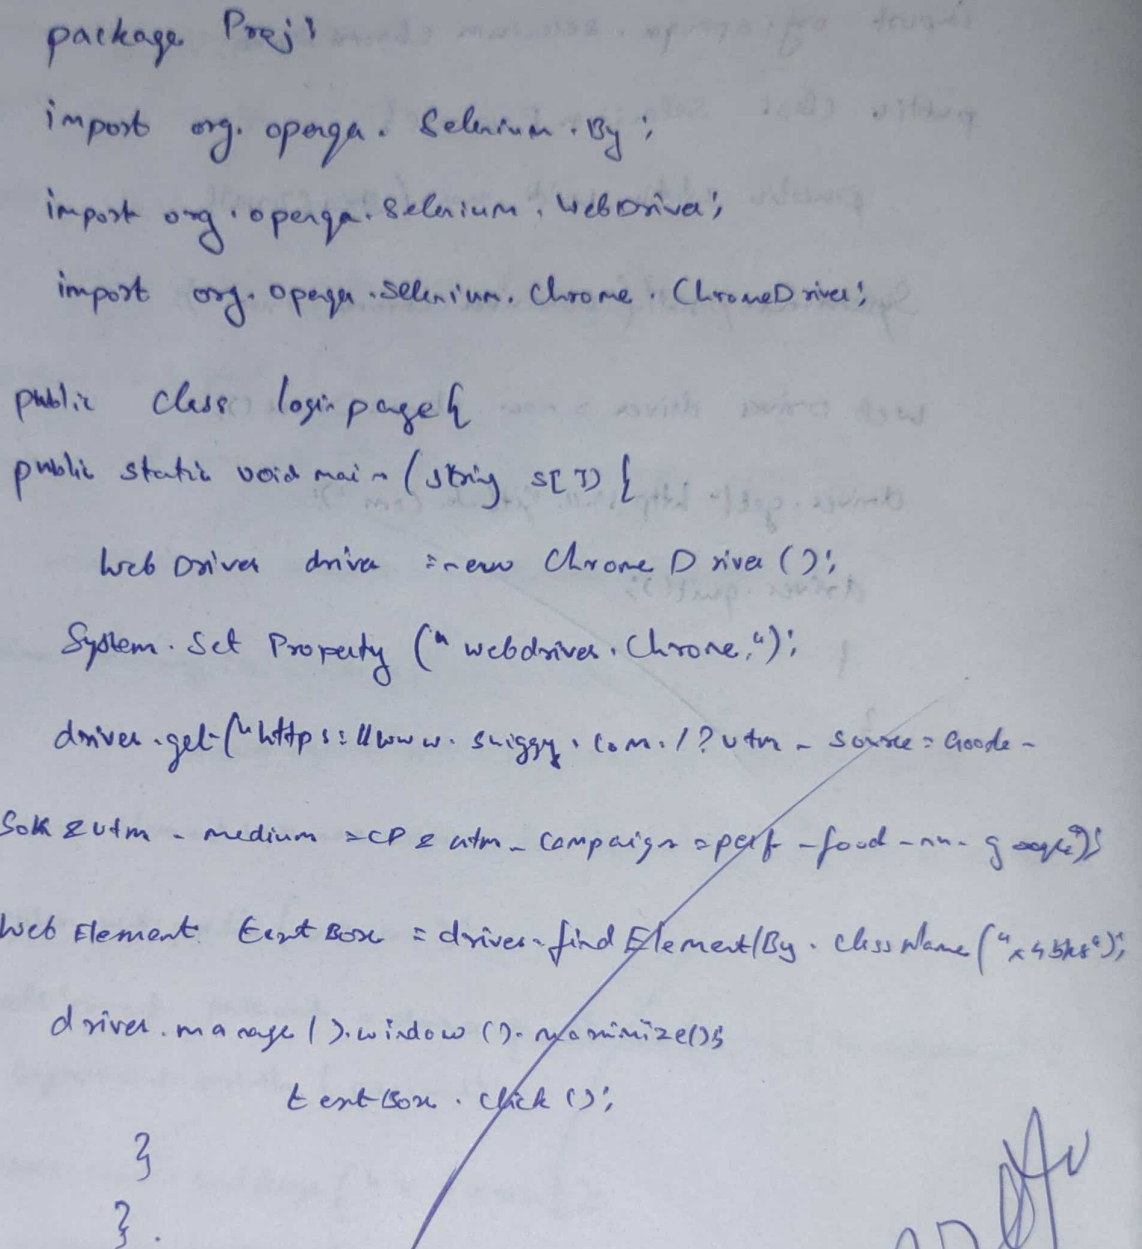 package Proj;
import org. openqa. Selenium. By;
import org. openqa. Selenium. WebDriver;
import org. openqa. Selenium. Chrome. ChromeDriver;
public class loginpage{
public static void main (string s[]) {
Web Driver driver = new Chrome Driver ();
System. Set Property ("webdriver. Chrome,");
driver.get("https://www.swiggy.com./?utm - source =
medium = CP & utm - Campaign = perf - food -
Web Element textBox = driver.findElement(By. className("x4bks");
driver.manage().window().maximize();
textBox.click();
}
}.